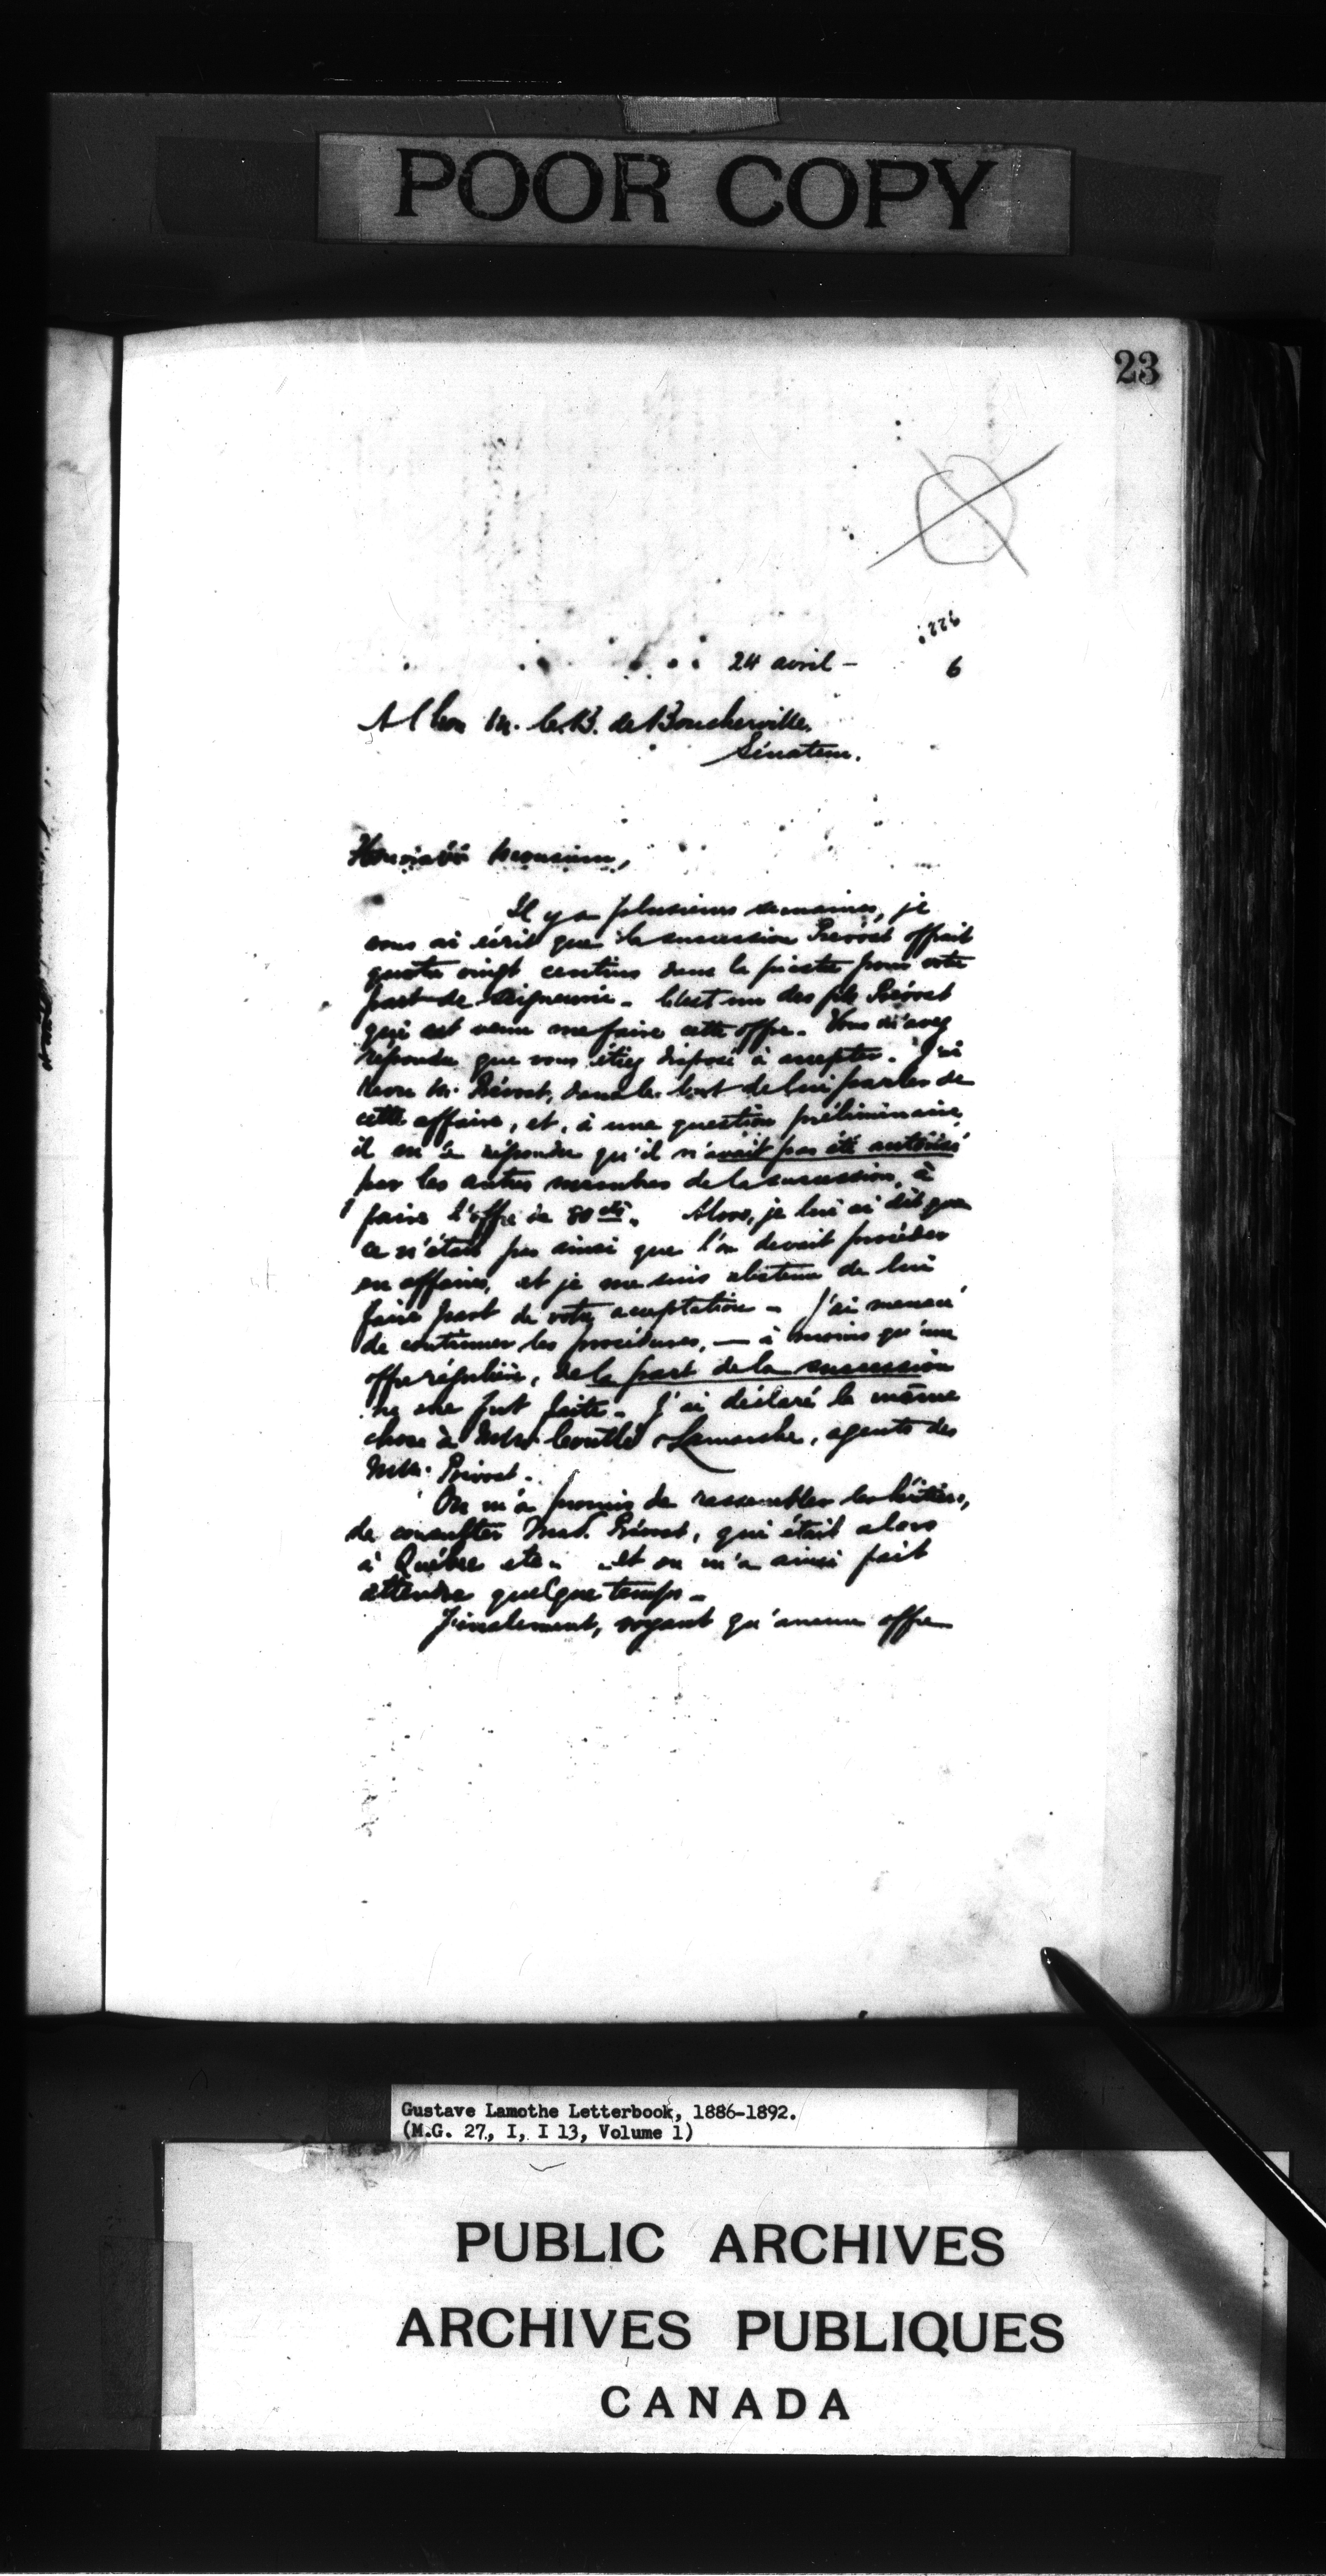 POOR COPY
23
24 avril - 6
A l'hon M. C. B. de Boucherville,
Sénateur.
Honorable Monsieur,
Il y a plusieurs semaines, je
vous ai écrit que la succession Prévost offrait
quatre vingt centins dans la piastre pour votre
part de seigneurie. C'est un des fils Prévost
qui est venu me faire cette offre. Vous m'avez
répondu que vous étiez disposé à accepter. J'ai
revu M. Prévost, dans le but de lui parler de
cette affaire, et, à une question préliminaire,
il m'a répondu qu'il n'avait pas été autorisé
par les autres membres de la succession, à
faire l'offre de 80 cts. Alors, je lui ai dit que
ce n'était pas ainsi que l'on devait procéder
en affaires, et je me suis abstenu de lui
faire part de votre acceptation - J'ai menacé
de continuer les procédures, - à moins qu'une
offre régulière, de la part de la succession
ne me fut faite. J'ai déclaré la même
chose à MM. Coutlée Lamarche, agents des
MM. Prévost.
On m'a promis de rassembler les héritiers,
de consulter Mad. Prévost, qui était alors
à Québec etc. et on m'a ainsi fait
attendre quelque temps -
Finalement, voyant qu'aucune offre
Gustave Lamothe Letterbook, 1886-1892.
(M.G. 27, I, I 13, Volume 1)
PUBLIC ARCHIVES
ARCHIVES PUBLIQUES
CANADA